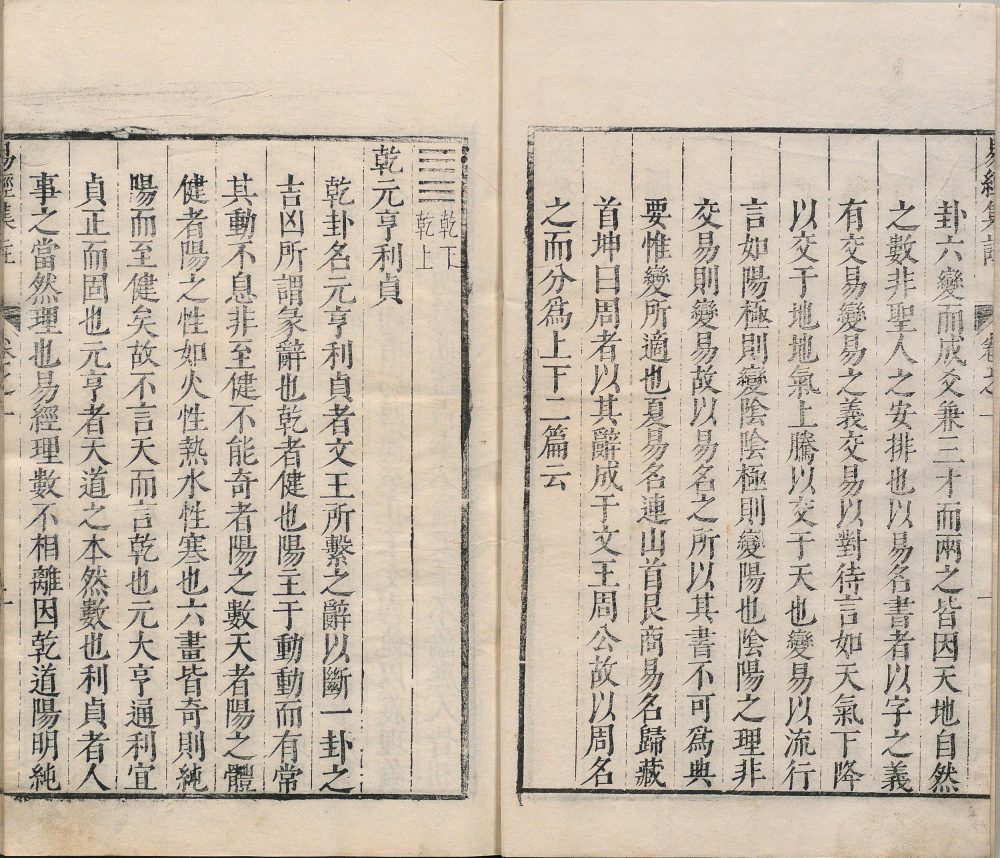 卦六變而成爻兼三才而兩之皆因天地自然
之數非聖人之安排也以易名書者以字之義
有交易變易之義交易以對待言如天氣下降
以交于地地氣上騰以交于天也變易以流行
言如陽極則變陰陰極則變陽也陰陽之理非
交易則變易故以易名之所以其書不可爲典
要惟變所適也夏易名連山首艮商易名歸藏
首坤曰周者以其辭成于文王周公故以周名
之而分爲上下二篇云
乾下
乾上
乾元亨利貞
乾卦名元亨利貞者文王所繫之辭以斷一卦之
吉凶所謂彖辭也乾者健也陽主于動動而有常
其動不息非至健不能奇者陽之數天者陽之體
健者陽之性如火性熱水性寒也六畫皆奇則純
陽而至健矣故不言天而言乾也元大亨通利宜
貞正而固也元亨者天道之本然數也利貞者人
事之當然理也易經理數不相離因乾道陽明純
易經集註 卷之一